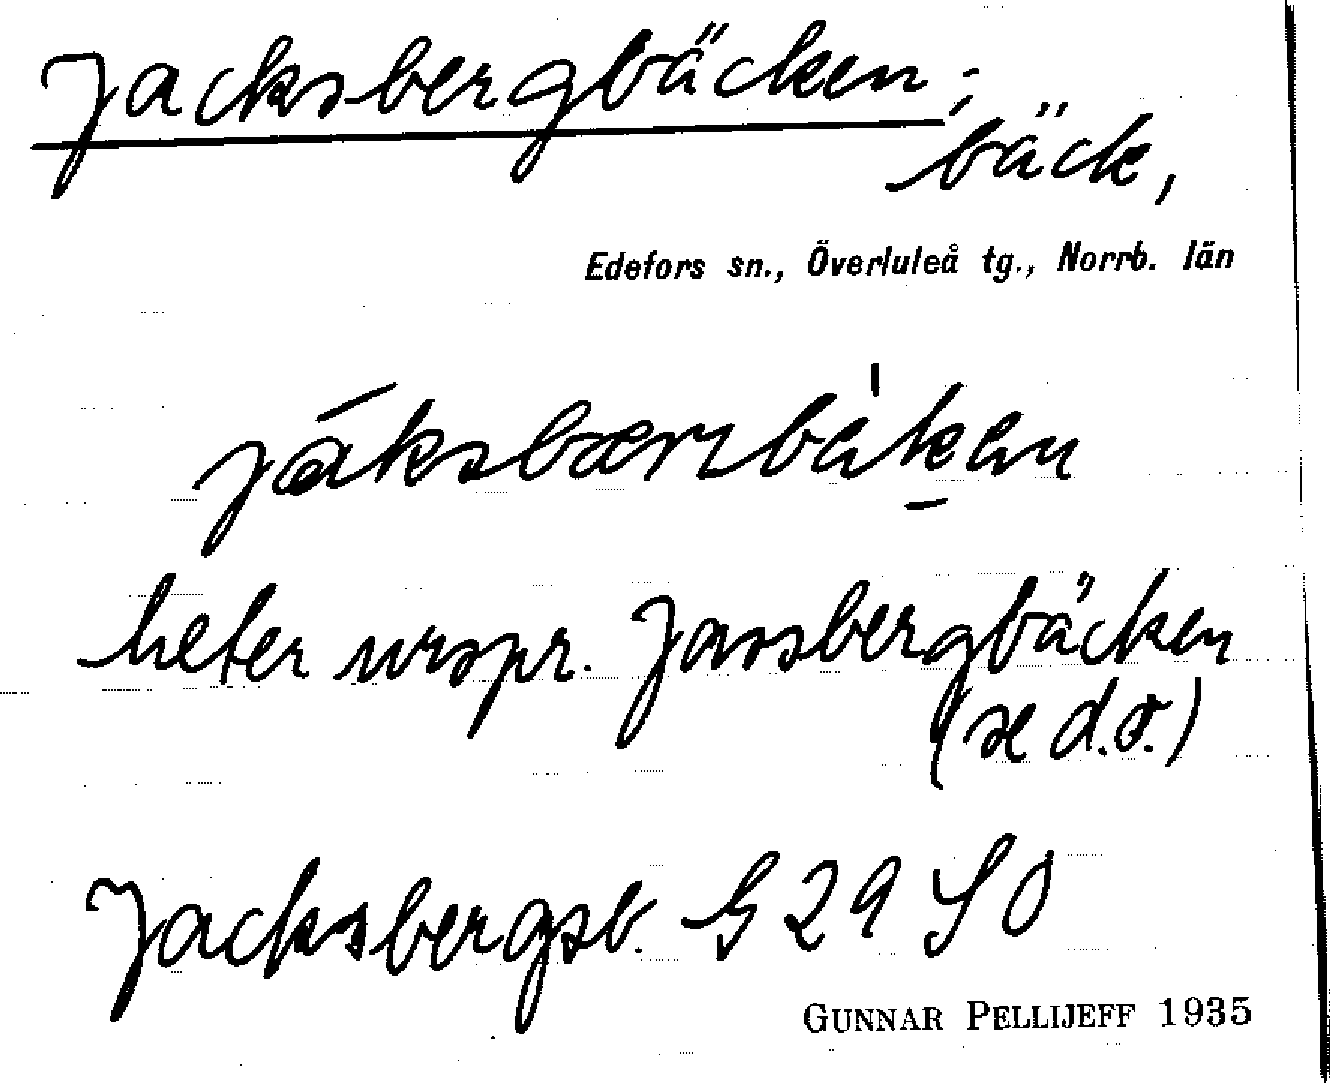 Jacksbergbäcken;
bäck,
Edefors sn., Överluleå tg., Norrb. län
heter urspr. Jassbergbäcken
(se d.o.)
Jacksbergsb. G 29 SO
GUNNAR PELLIJEFF 1935